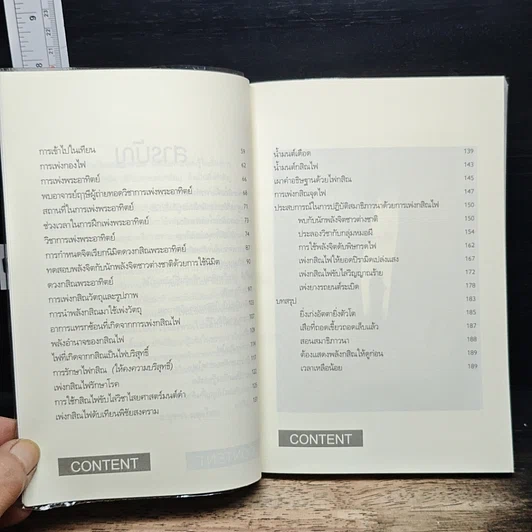 การเข้าไปในเทียน 59
การเพ่งกองไฟ 62
การเพ่งพระอาทิตย์ 64
พบอาจารย์ฤาษีผู้ถ่ายทอดวิชาการเพ่งพระอาทิตย์ 68
สถานที่ในการเพ่งพระอาทิตย์ 71
ช่วงเวลาในการฝึกเพ่งพระอาทิตย์ 73
วิชาการเพ่งพระอาทิตย์ 77
การกำหนดจิตเรียกนิมิตดวงกสิณพระอาทิตย์
ทดสอบพลังจิตกับนักพลังจิตชาวต่างชาติด้วยการใช้นิมิต 90
ดวงกสิณพระอาทิตย์
การเพ่งกสิณวัตถุและรูปภาพ
การนำพลังกสิณมาใช้เพ่งวัตถุ
อาการแทรกซ้อนที่เกิดจากการเพ่งกสิณไฟ
พลังอำนาจของกสิณไฟ
ไฟที่เกิดจากกสิณเป็นไฟบริสุทธิ์
การรักษาไฟกสิณ (ให้คงความบริสุทธิ์)
เพ่งกสิณไฟรักษาโรค
การใช้กสิณไฟขับไล่วิชาไสยศาสตร์มนต์ดำ
เพ่งกสิณไฟดับเทียนพิชัยสงคราม
CONTENT
น้ำมนต์เดือด 139
น้ำมนต์กสิณไฟ 143
เผาคำอธิษฐานด้วยไฟกสิณ 145
การเพ่งกสิณจุดไฟ 147
ประสบการณ์ในการปฏิบัติสมาธิภาวนาด้วยการเพ่งกสิณไฟ 150
พบกับนักพลังจิตชาวต่างชาติ 150
ประลองวิชากับกลุ่มหมอผี 154
การใช้พลังจิตดับพิษกรดไฟ
เพ่งกสิณไฟให้ยอดปิรามิดเปล่งแสง
เพ่งกสิณไฟขับไล่วิญญาณร้าย
เพ่งยางรถยนต์ระเบิด 178
บทสรุป 183
ยิ่งเก่งอัตตายิ่งตัวโต 185
เสือที่ถอดเขี้ยวถอดเล็บแล้ว 185
สอนสมาธิภาวนา 188
ต้องแสดงพลังกสิณให้ดูก่อน 189
เวลาเหลือน้อย 189
CONTENT